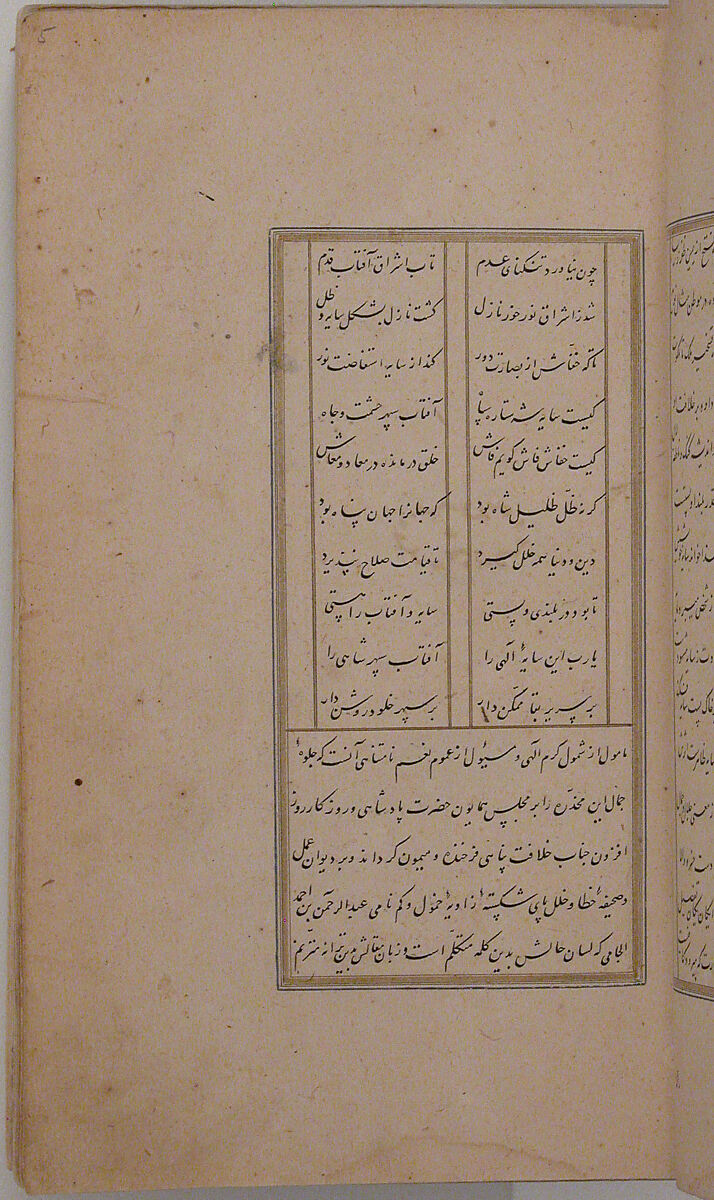 5
چون نیاورد تنکنای عدم تاب اشراق آفتاب قدم
شد ز اشراق نور خور نازل کشت نازل بشکل سایه و ظل
تا که خفاش از بصارت دور کند از سایه استفاضت نور
کیست سایه شه ستاره سپاه آفتاب سپهر حشمت و جاه
کیست خفاش فاش کویم فاش خلق درمانده در معاد و معاش
کر نه ظل ظلیل شاه بود که جهانرا جهان پناه بود
دین و دنیا همه خلل کیرد تا قیامت صلاح نپذیرد
تا بود در بلندی و پستی سایه و آفتاب را هستی
یارب این سایهٔ الهی را آفتاب سپهر شاهی را
بر سریر بقا ممکن دار بر سپهر خلود روشن دار
مامول از شمول کرم الهی و مسئول از عموم نعم نامتناهی آنست که جلوهٔ
جمال این مخدره را بر مجلس همایون حضرت پادشاهی و روزکار روز
افزون جناب خلافت پناهی فرخنده و میمون کرداند و بر دیوان عمل
و صحیفهٔ خطا و خلل پای شکستهٔ زاویهٔ خمول و کم نامی عبدالرحمن بن احمد
الجامی که لسان حالش بدین کلمه متکلم است و زبان مقالش بدین ترانه مترنم